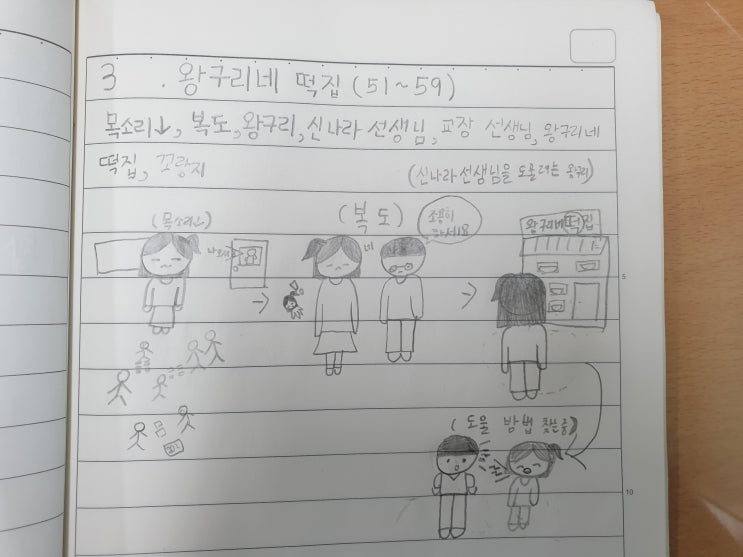 3 . 왕구리네 떡집 (51~59)
목소리↓, 복도, 왕구리, 신나라 선생님, 교장 선생님, 왕구리네
떡집, 꼬랑지
(신나라 선생님을 도울려는 왕구리)
(목소리↓)
(복도)
네
조용히
하세요
왕구리네 떡집
5
(도울 방법 찾는중)
10